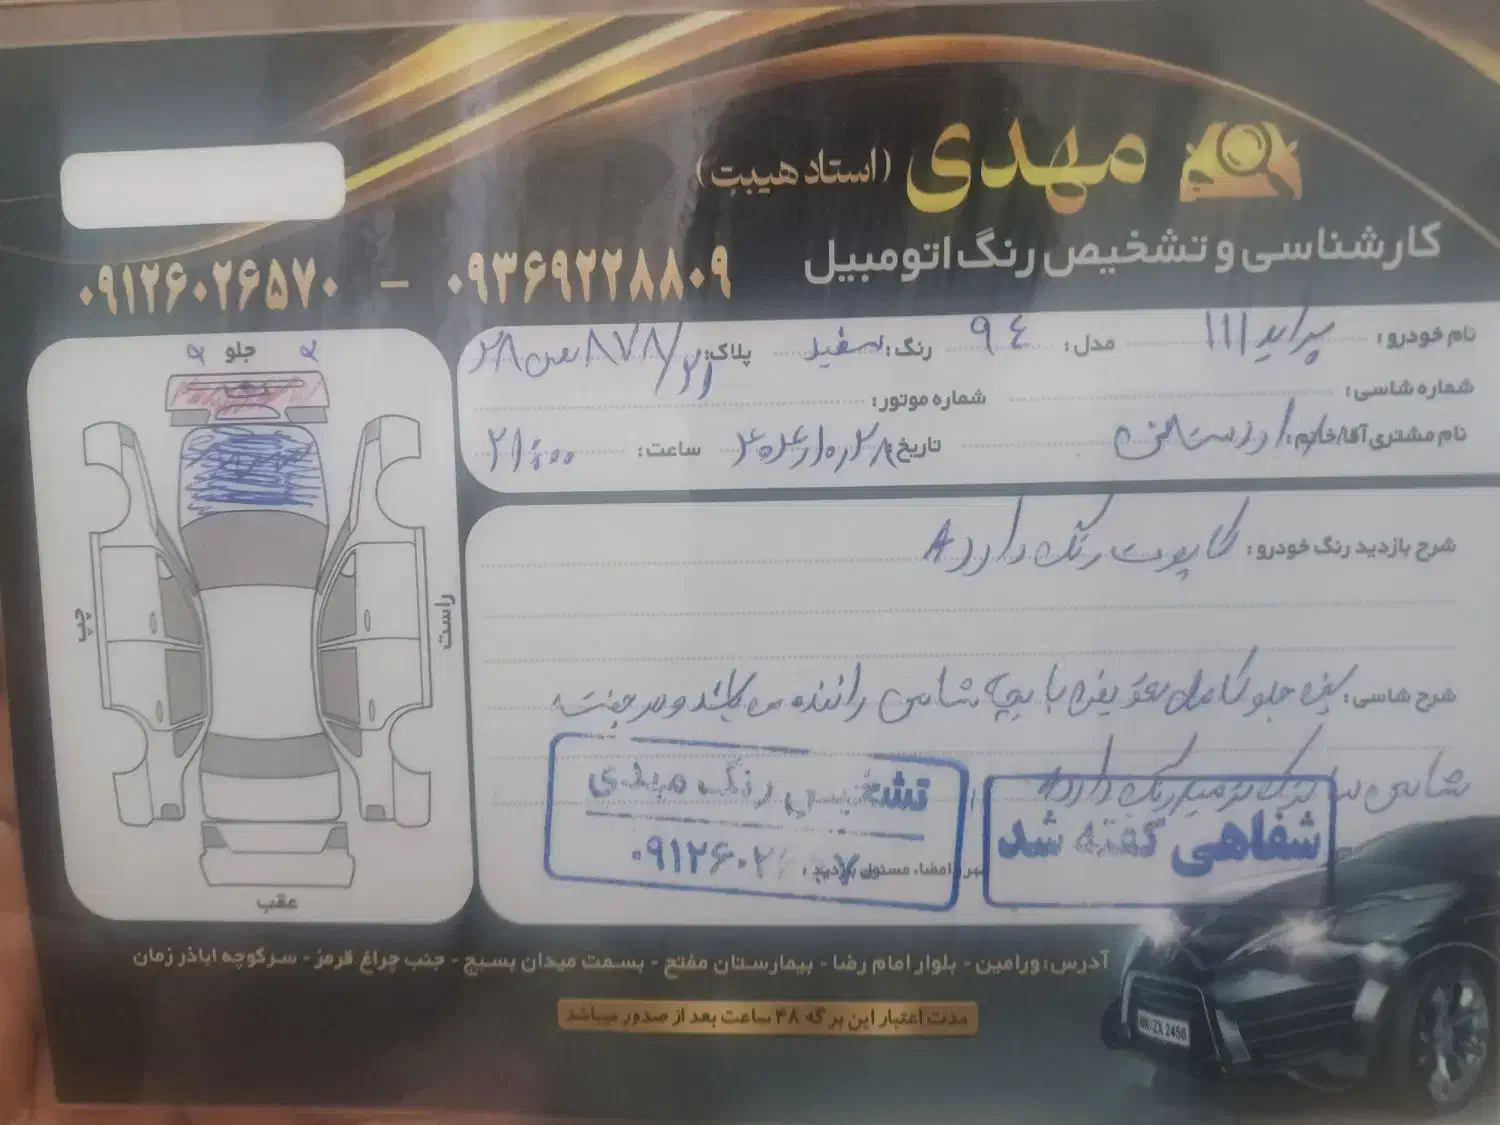 مهدی (استاد هیبت)
کارشناسی و تشخیص رنگ اتومبیل
۰۹۳۶۹۲۲۸۸۰۹ - ۰۹۱۲۶۰۲۶۵۷۰
نام خودرو: پراید ۱۱۱ مدل: ۹٤ رنگ: سفید پلاک: ۲۱/ ۸۷۸ ص ۲۸
شماره شاسی: شماره موتور:
نام مشتری آقا/خانم: تاریخ: ساعت: ۲۱:۰۰
شرح بازدید رنگ خودرو: کاپوت رنگ دارد
شرح شاسی: سینی جلو کامل تعویض با پیچ شاسی راننده می باشد و سر جفت
شاسی ها رنگ دارد
تشخیص رنگ مهدی
شفاهی گفته شد
مهر و امضاء مسئول بازدید:
جلو
چپ
راست
عقب
آدرس: ورامین - بلوار امام رضا - بیمارستان مفتح - بسمت میدان بسیج - جنب چراغ قرمز - سرکوچه اباذر زمان
مدت اعتبار این برگه ۴۸ ساعت بعد از صدور میباشد